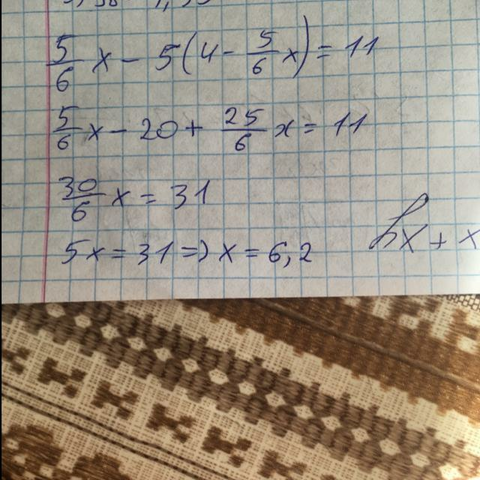 5/6 x - 5(4 - 5/6 x) = 11
5/6 x - 20 + 25/6 x = 11
30/6 x = 31
5x = 31 => x = 6,2
x + x